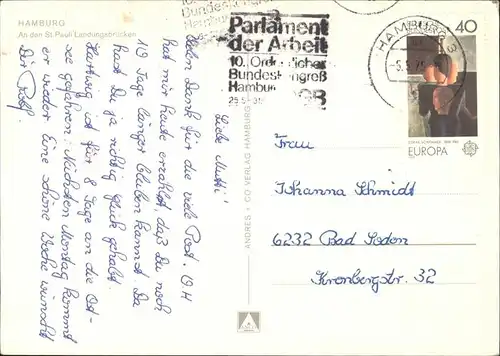 HAMBURG
An den St. Pauli Landungsbrücken
Liebe Mutti!
Vielen Dank für die viele Post.
hat mir heute erzählt, daß Du noch
10 Tage länger bleiben kannst. Da
hast Du ja richtig Glück gehabt.
Hartwig ist für 8 Tage an die Ost-
see gefahren. Nächsten Montag kommt
er wieder. Eine schöne Woche wünscht
Dir Rolf.
ANDRES + CO VERLAG HAMBURG
Parlament
der Arbeit
10. Ordentlicher
Bundeskongreß
Hamburg
HAMBURG
40
EUROPA
Frau
Johanna Schmidt
6232 Bad Soden
Kronbergstr. 32